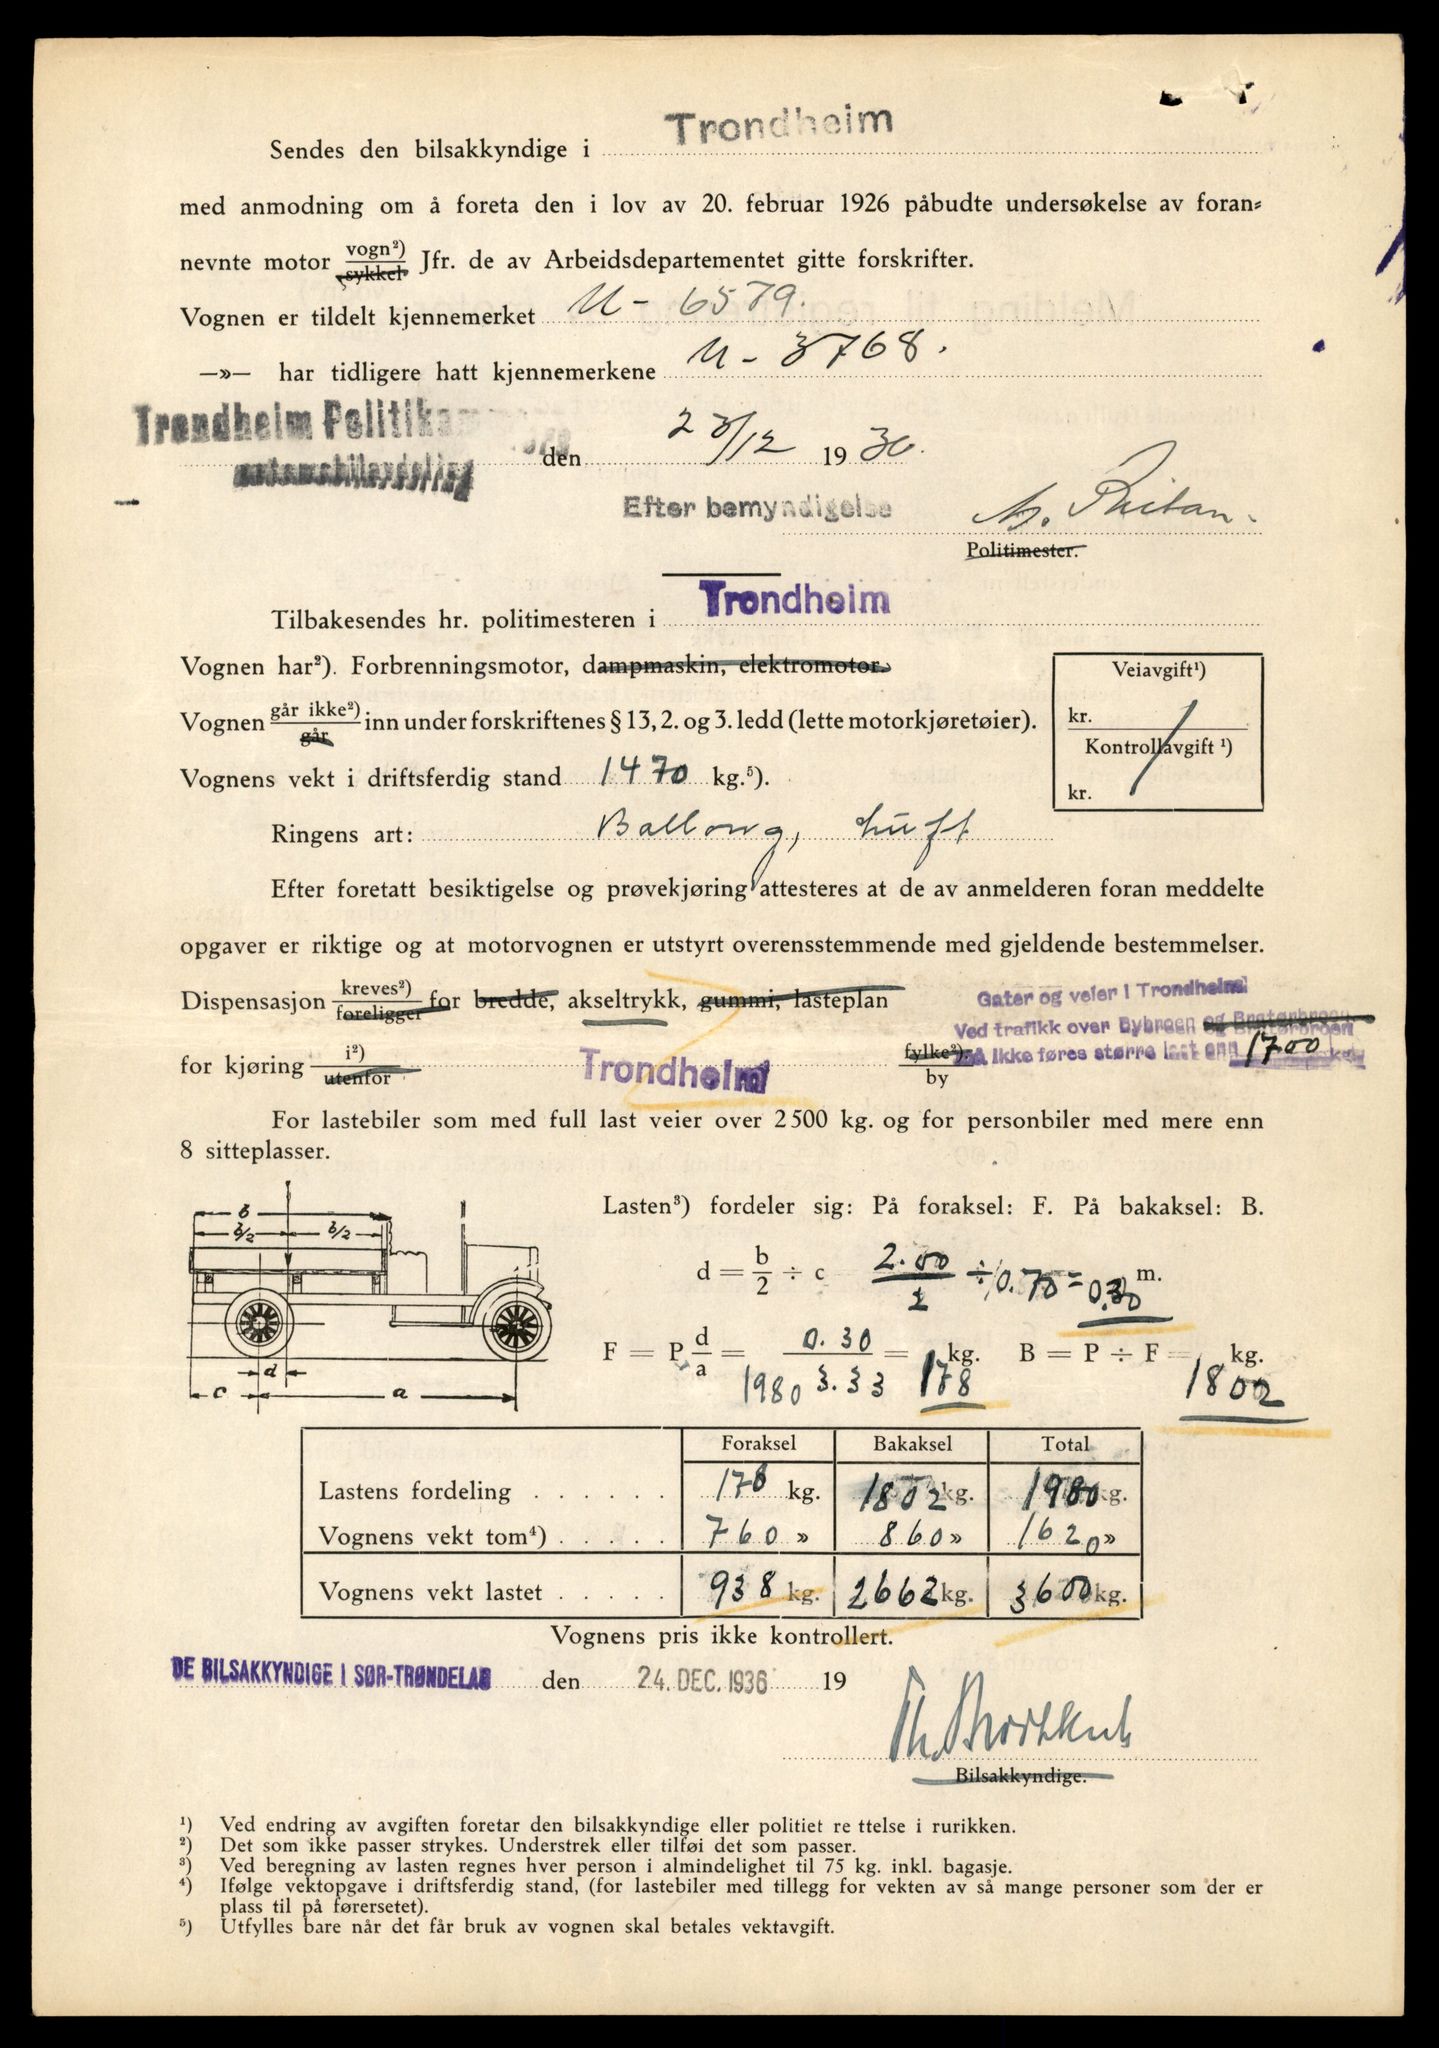 Trondheim
Sendes den bilsakkyndige i
med anmodning om å foreta den i lov av 20. februar 1926 påbudte undersøkelse av foran=
nevnte motor vogn²) sykkel Jfr. de av Arbeidsdepartementet gitte forskrifter.
Vognen er tildelt kjennemerket U - 6579.
—»— har tidligere hatt kjennemerkene U - 3768.
Trondheim Politikam
automobilavdeling den 23/12 1936.
Efter bemyndigelse
Politimester.
Tilbakesendes hr. politimesteren i Trondheim
Vognen har²). Forbrenningsmotor, dampmaskin, elektromotor.
Veiavgift¹)
kr.
Kontrollavgift ¹)
kr.
Vognen går ikke²) går inn under forskriftenes § 13, 2. og 3. ledd (lette motorkjøretøier).
Vognens vekt i driftsferdig stand 1470 kg.⁵).
Ringens art: Ballong, luft
Efter foretatt besiktigelse og prøvekjøring attesteres at de av anmelderen foran meddelte
opgaver er riktige og at motorvognen er utstyrt overensstemmende med gjeldende bestemmelser.
Dispensasjon kreves²) foreligger for bredde, akseltrykk, gummi, lasteplan
for kjøring i²) utenfor Trondheim fylke²) by
Gater og veier i Trondheim
Ved trafikk over Bybroen og Bratørbroen
må ikke føres større last enn 1700 kg.
For lastebiler som med full last veier over 2500 kg. og for personbiler med mere enn
8 sitteplasser.
b
b/2 b/2
d
c a
Lasten³) fordeler sig: På foraksel: F. På bakaksel: B.
d = b/2 ÷ c 2.00/2 ÷ 0.70 = 0.30 m.
F = P d/a = 1980 0.30/3.33 = 178 kg. B = P ÷ F = 1802 kg.
Foraksel Bakaksel Total
Lastens fordeling . . . . . . 178 kg. 1802 kg. 1980 kg.
Vognens vekt tom⁴) . . . . . 760 » 860 » 1620 »
Vognens vekt lastet . . . . . 938 kg. 2662 kg. 3600 kg.
Vognens pris ikke kontrollert.
DE BILSAKKYNDIGE I SØR-TRØNDELAG den 24. DEC. 1936 19
Bilsakkyndige.
¹) Ved endring av avgiften foretar den bilsakkyndige eller politiet re ttelse i rurikken.
²) Det som ikke passer strykes. Understrek eller tilføi det som passer.
³) Ved beregning av lasten regnes hver person i almindelighet til 75 kg. inkl. bagasje.
⁴) Ifølge vektopgave i driftsferdig stand, (for lastebiler med tillegg for vekten av så mange personer som der er
plass til på førersetet).
⁵) Utfylles bare når det får bruk av vognen skal betales vektavgift.